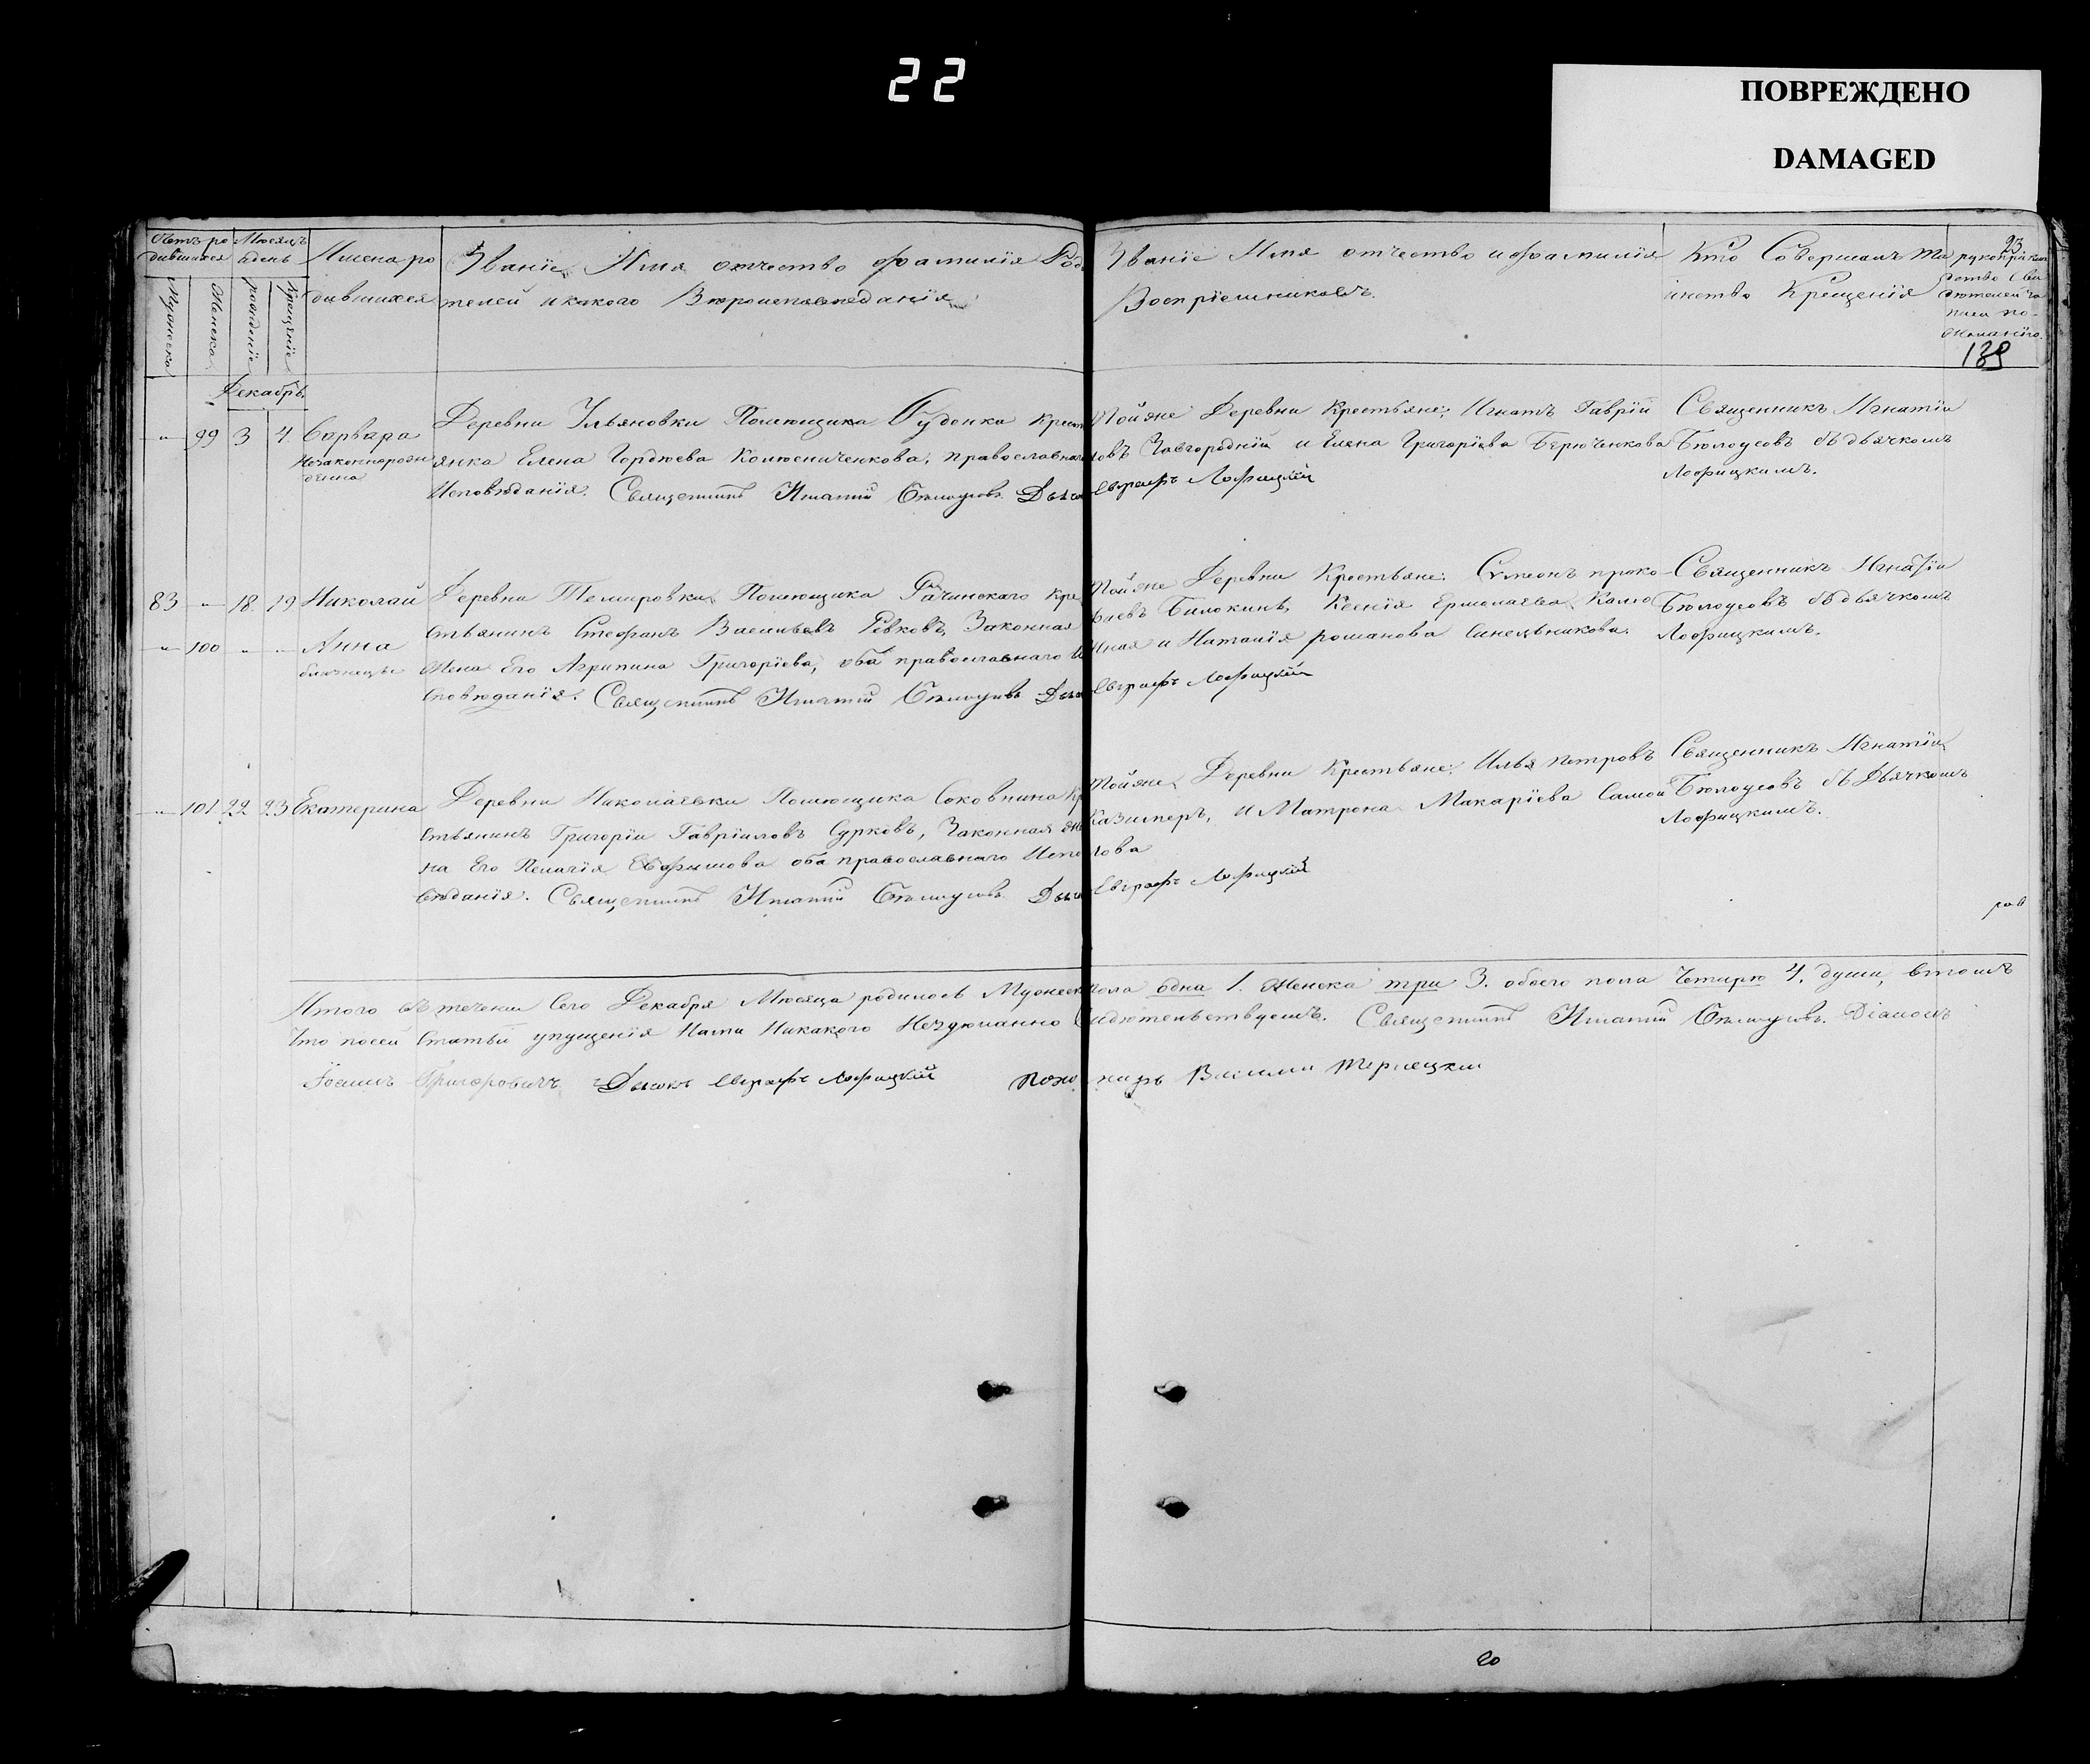 22
ПОВРЕЖДЕНО
DAMAGED
Счетъ ро
дившихся
Мужеска
Женска
Мѣсяцъ
и день
рожденіе
Крещеніе
Имена ро
дившихся
Званіе, Имя отчество фамилія Род
телей и какого Вѣроисповеданія
Званіе Имя отчество и фамилія
Воспріемниковъ.
Кто Совершалъ Та
инство Крещенія
23.
рукоприклад
ство Сви
дѣтелей за
писи по
желанію.
139
Декабрь.
" 99 3 4 Варвара
Незаконнорож
денна
Деревни Ульяновки Помѣщика Гудонка Крест
янка Елена Гордѣева Колѣсниченкова, православнаго
Исповѣданія. Священникъ Игнатій Бѣлоусовъ Дьячокъ
Тойже Деревни Крестьяне: Игнатъ Гаврiи
ловъ Завгородніи и Елена Григоріева Берюченкова
Евграфъ Лофицкій
Священникъ Игнатіи
Бѣлоусовъ съ дьячкомъ
Лофицкимъ.
83 " 18 19 Николай
" 100 " " Анна
близнецы
Деревни Темировки Помѣщика Рачинскаго Кре
стьянинъ Стефанъ Васильевъ Ревковъ, Законная
Жена Его Агрипина Григоріева, оба православнаго И
споведанія. Священникъ Игнатій Бѣлоусовъ Дьячокъ
Тойже Деревни Крестьяне: Сумеонъ проко
фиевъ Билокинь, Ксенія Ермолаева Калю
жная и Наталія романова Синельникова.
Евграфъ Лофицкій
Священникъ Игнатіи
Бѣлоусовъ съ дьячкомъ
Лофицкимъ.
" 101 22 23 Екатерина
Деревни Николаевки Помѣщика Соковнина Кр
стьянинъ Григоріи Гавріиловъ Сурковъ, Законная же
на Его Пелагія Евфимова оба православнаго Испо
вѣданія. Священникъ Игнатій Бѣлоусовъ Дьячокъ
Тойже Деревни Крестьяне: Илья петровъ
Казимеръ, и Матрона Макаріева Самой
лова
Евграфъ Лофицкій
Священникъ Игнатіи
Бѣлоусовъ съ Дьячкомъ
Лофицкимъ.
Итого въ течени Сего Декабря Мѣсяца родилось Мужеска пола одна 1. Женска три 3. обоего пола Четыри 4. души, втомъ
Что посей Статьи упущенія Нами Никакого Нездѣланно Свидѣтельствуемъ. Священникъ Игнатій Бѣлоусовъ. Діаконъ
Іоаннъ Григоровичъ Дьячокъ Евграфъ Лофицкій Поно марь Василии
20